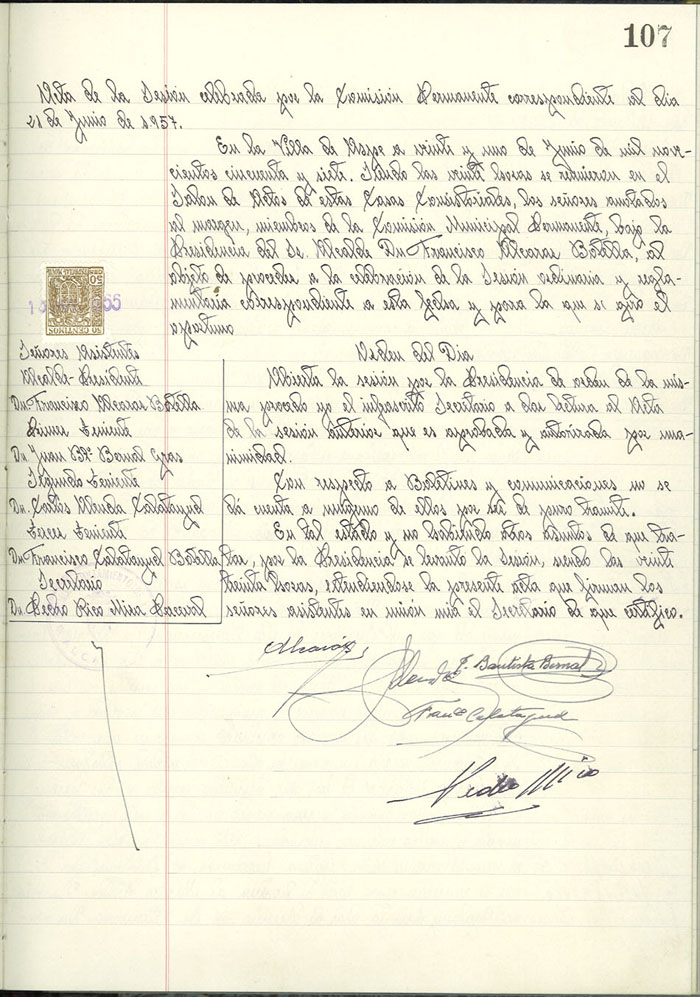 107
Acta de la Sesión celebrada por la Comisión Permanente correspondiente al dia
21 de Junio de 1.957.
En la Villa de Aspe a veinte y uno de Junio de mil nove-
cientos cincuenta y siete. Siendo las veinte horas se reunieron en el
Salon de Actos de estas Casas Consistoriales, los señores anotados
al margen, miembros de la Comisión Municipal Permanente, bajo la
Presidencia del Sr. Alcalde Dn. Francisco Alcaraz Botella, al
objeto de proceder a la celebración de la Sesión ordinaria y regla-
mentaria correspondiente a esta fecha y para la que se giró el
oportuno
Orden del Dia
Abierta la sesión por la Presidencia de orden de la mis-
ma procedo yo el infrascrito Secretario a dar lectura al Acta
de la sesión anterior que es aprobada y autorizada por una-
nimidad.
Con respecto a Boletines y comunicaciones no se
dá cuenta a ninguno de ellos por ser de puro tramite.
En tal estado y no habiendo otros asuntos de que tra-
tar, por la Presidencia se levanto la Sesión, siendo las veinte
treinta horas, extendiendose la presente acta que firman los
señores asistentes en unión mia el Secretario de que certifico.
50 CENTIMOS
Señores Asistentes
Alcalde-Presidente
Dn. Francisco Alcaraz Botella
Primer Teniente
Dn. Juan Bta. Bernal Cras
Segundo Teniente
Dn. Carlos Alenda Calatayud
Tercer Teniente
Dn. Francisco Calatayud Botella
Secretario
Dn. Pedro Rico Mira
Alcaraz
Alenda
J. Bautista Bernal
Franco Calatayud
Pedro Rico